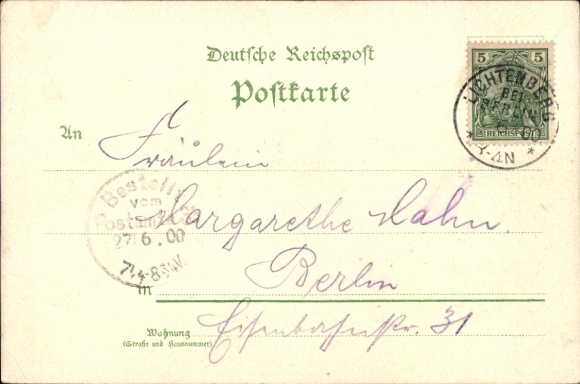 Deutsche Reichspost
Postkarte
5 5
REICHSPOST
LICHTENBERG
BEI
BERLIN
3-4N
An
Fräulein
Margarethe Hahn.
Bestellt
vom
Postamte
27.6.00
7¼-8¾V.
in
Berlin
Wohnung
(Straße und Hausnummer)
Eisenbahnstr. 31